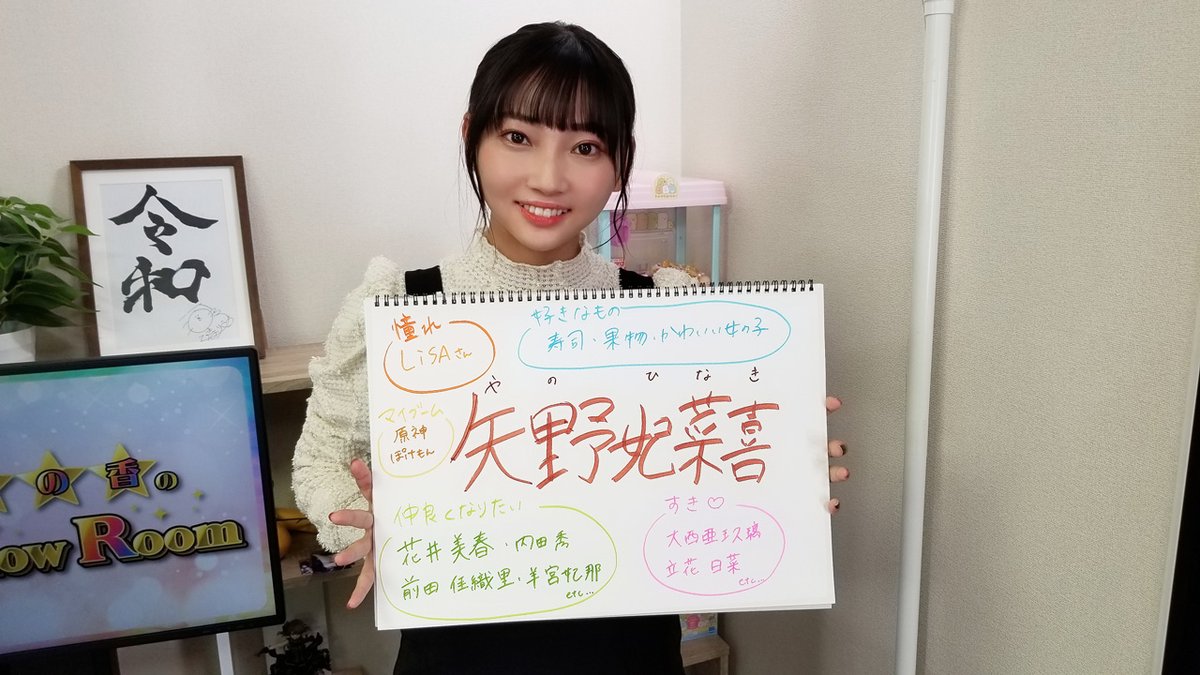 令和
の香の
ow Room
憧れ
LiSAさん
好きなもの
寿司・果物・かわいい女の子
やの ひなき
矢野妃菜喜
マイブーム
原神
ぽけもん
仲良くなりたい
花井美春・内田秀
前田佳織里・羊宮妃那
etc...
すき♡
大西亜玖璃
立花日菜
etc...